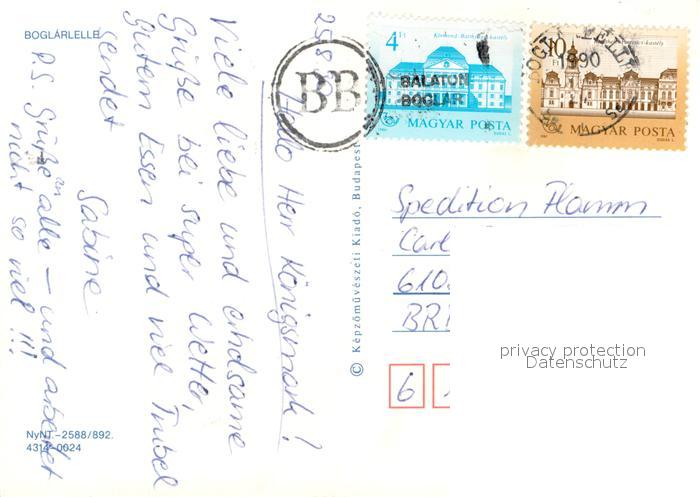 BOGLÁRLELLE
25.8.
Hallo Herr Königsmark!
Viele liebe und erholsame
Grüße bei super Wetter,
Gutem Essen und viel Trubel
sendet
Sabine
P.S. Grüße an alle – und arbeitet
nicht so viel !!!
NyNT.-2588/892.
4314-0024
© Képzőművészeti Kiadó, Budapest
BB
4 Ft
MAGYAR POSTA
BALATON
BOGLÁR
10
1990
MAGYAR POSTA
Spedition Flamm
Carl
610
BR
6
privacy protection
Datenschutz